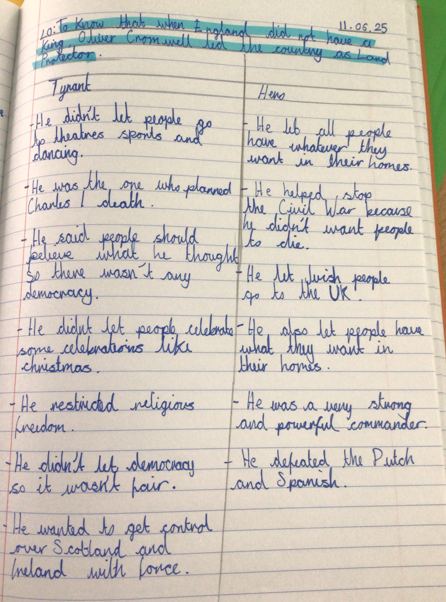 LO: To Know that when England did not have a 11.06.25
King, Oliver Cromwell led the country as Lord
Protector.
Tyrant
- He didn't let people go
to theatres sports and
dancing.
- He was the one who planned
Charles I death.
- He said people should
believe what he thought
so there wasn't any
democracy.
- He didn't let people celebrate
some celebrations like
christmas.
- He restricted religious
freedom.
- He didn't let democracy
so it wasn't fair.
- He wanted to get control
over Scotland and
Ireland with force.
Hero
- He let all people
have whatever they
want in their homes.
- He helped stop
the Civil War because
he didn't want people
to die.
- He let people
go to the UK.
- He also let people have
what they want in
their homes.
- He was a very strong
and powerful commander.
- He defeated the Dutch
and Spanish.